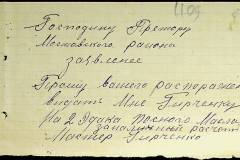 1109
Господину Претору
Московского района
заявление
Прошу вашего распоряжен
видать Мне Гирченку
на 2 Эдака посного Масла
Мастер Гирченко